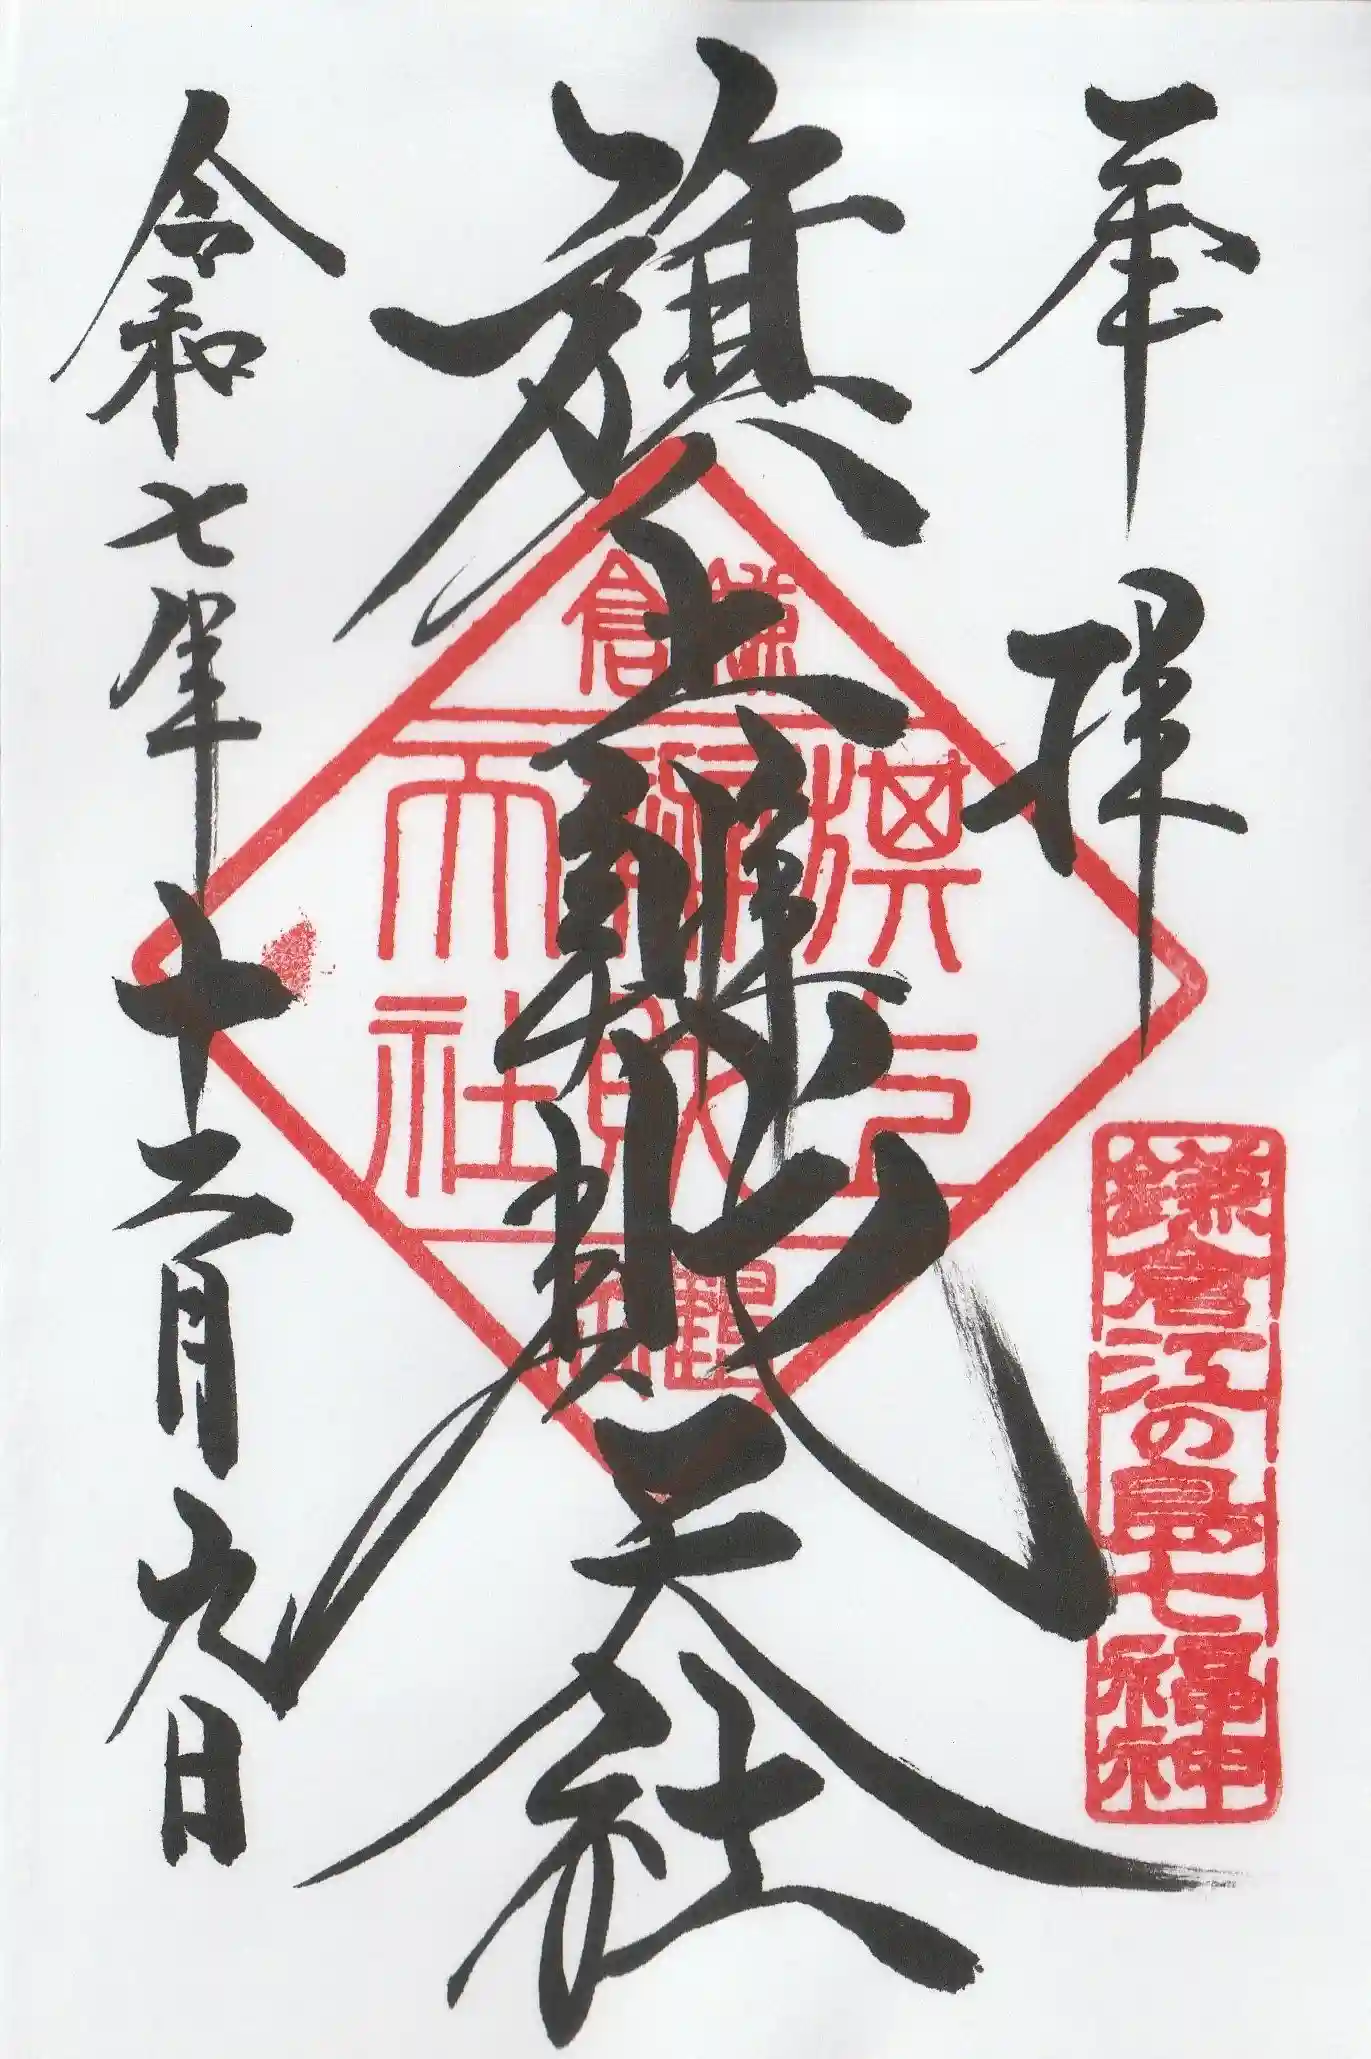 奉拝
鎌倉江の島七福神
旗上辨財天社
鎌倉
旗上
辨財
天社
鶴
令和七年十二月九日